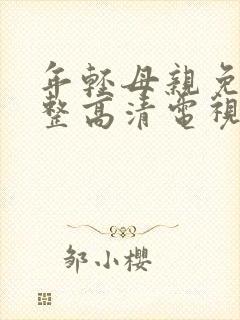 年輕母親免
整高清電視
鄒小櫻